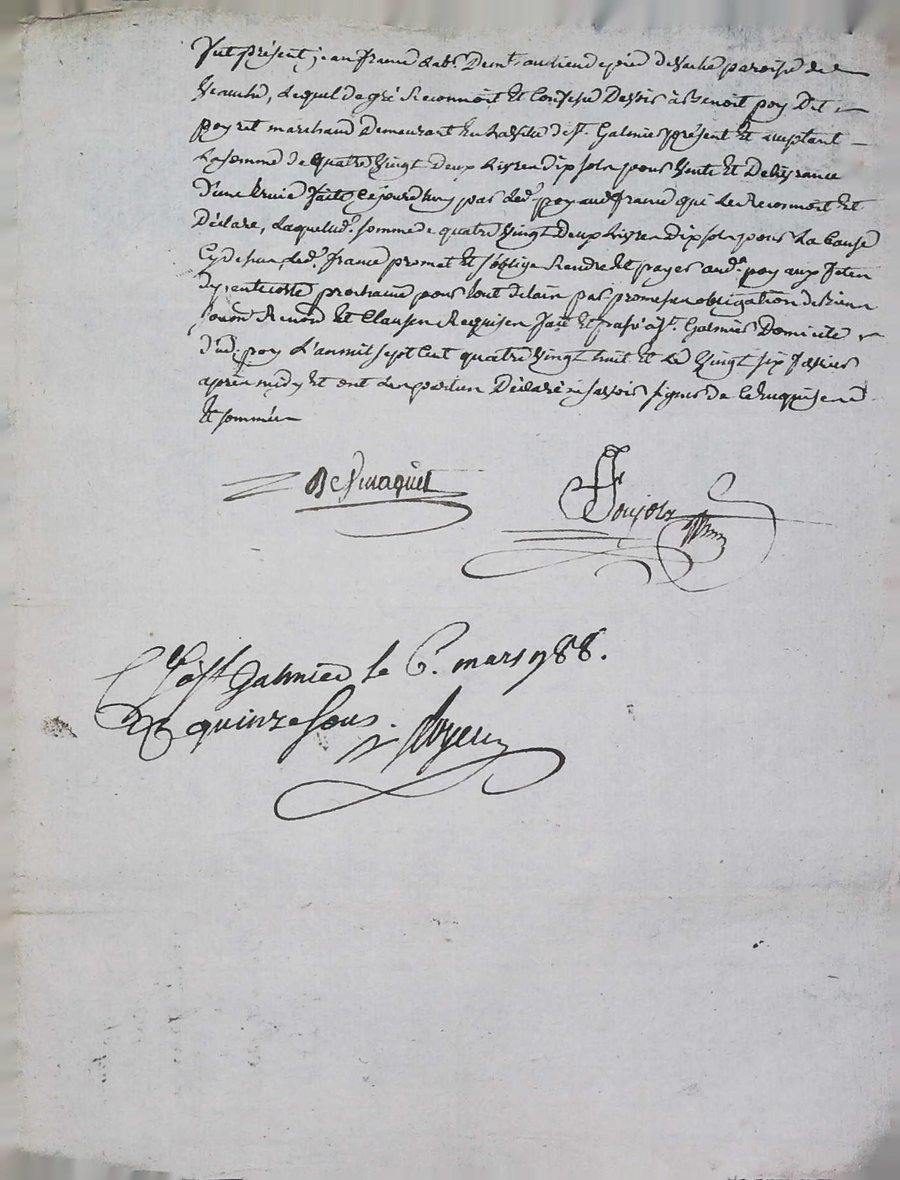 fut présent jean france lab.r Demt. au lieu de paroisse de
Veauche, Lequel de gré Reconnoit Et Confesse Devoir à Benoit poy Dit
poyret marchand Demeurant En La Ville de St. Galmier présent Et acceptant
La somme de quatre Vingt Deux Livres dix sols pour Vente Et Délivrance
D'une faite Cejourd'huy par led. poy aud. france qui Le Reconnoit Et
Déclare, Laquelle d. somme de quatre Vingt Deux Livres Dix sols pour La Cause
Cy dessus led. france promet Et s'oblige Rendre Et payer aud. poy aux fetes
De pentecoste prochaine pour tout délais par promesse obligation de Biens
Renon Et Clauses Requises fait Et passé à St. Galmier Domicile
Dud. poy L'an mil sept Cent quatre Vingt huit Et Le Vingt six
après midy Et ont Les parties Déclaré ne savoir signer de Ce Enquises
Et sommées
Ponjols
à St Galmier le 6. mars 1788.
quinze sous.